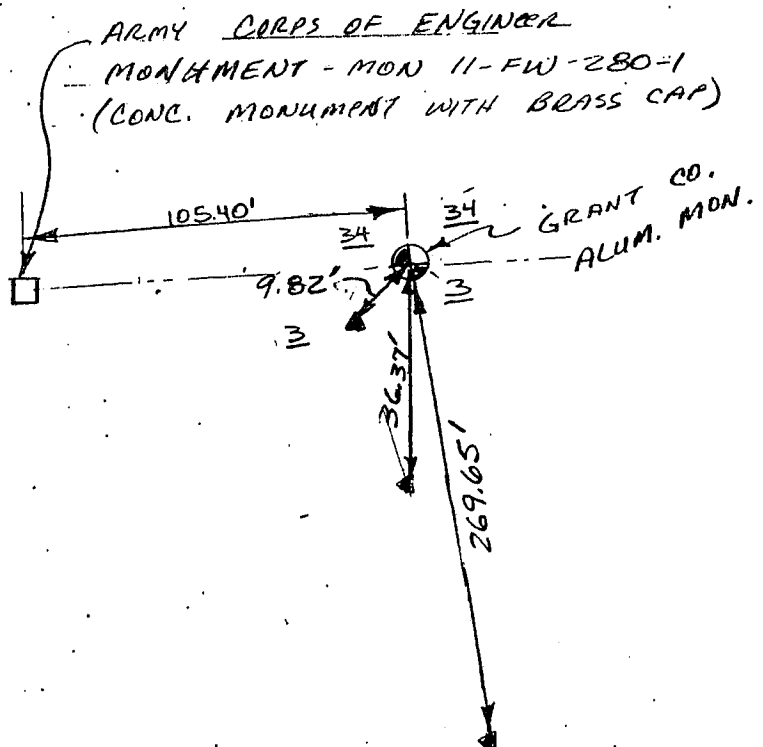 ARMY CORPS OF ENGINEER
MONUMENT - MON 11-FW-280-1
(CONC. MONUMENT WITH BRASS CAP)
105.40'
34
34
GRANT CO.
ALUM. MON.
9.82'
3
3
36.37'
269.65'